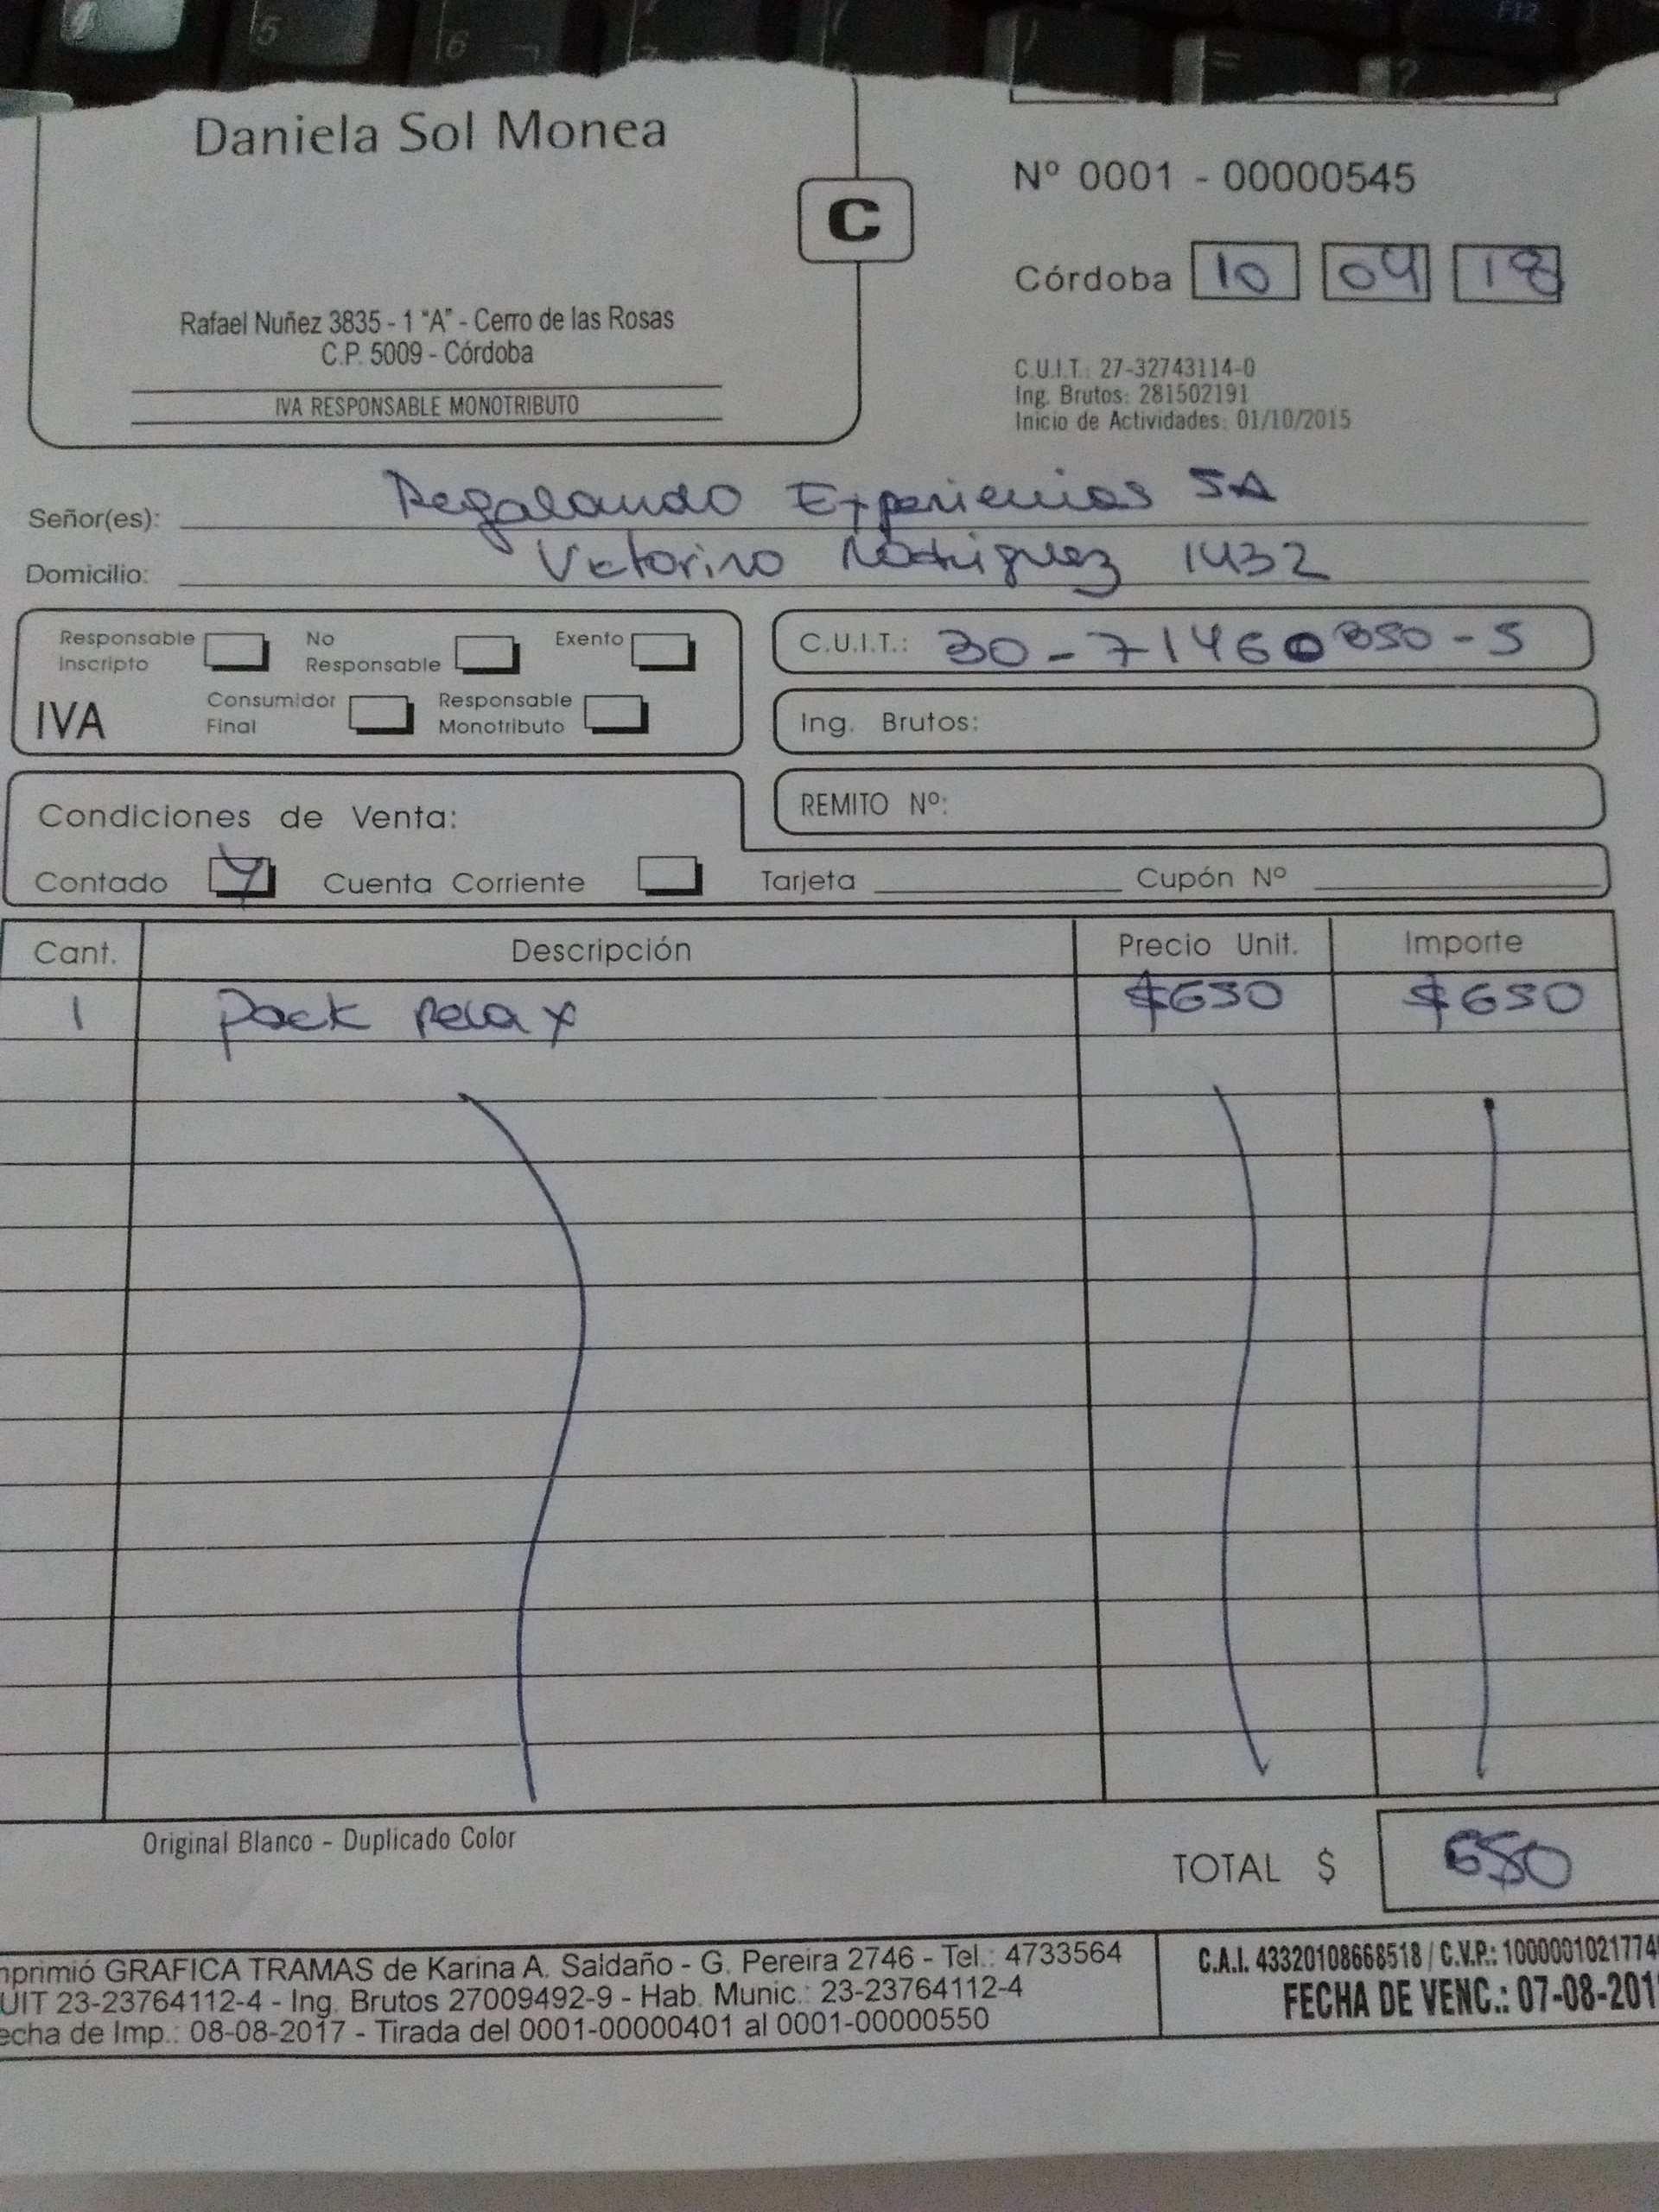 Daniela Sol Monea
C
Nº 0001 - 00000545
Córdoba 10 04 18
Rafael Nuñez 3835 - 1 "A" - Cerro de las Rosas
C.P. 5009 - Córdoba
IVA RESPONSABLE MONOTRIBUTO
C.U.I.T.: 27-32743114-0
Ing. Brutos: 281502191
Inicio de Actividades: 01/10/2015
Señor(es): Regalando Experiencias SA
Domicilio: Victorino Rodriguez 1432
IVA
Responsable Inscripto
No Responsable
Exento
Consumidor Final
Responsable Monotributo
C.U.I.T.: 30-71460850-5
Ing. Brutos:
REMITO Nº:
Condiciones de Venta:
Contado Cuenta Corriente Tarjeta Cupón Nº
Cant. Descripción Precio Unit. Importe
1 Pack relax $650 $650
Original Blanco - Duplicado Color
TOTAL $ 650
mprimió GRAFICA TRAMAS de Karina A. Saldaño - G. Pereira 2746 - Tel.: 4733564
UIT 23-23764112-4 - Ing. Brutos 27009492-9 - Hab. Munic.: 23-23764112-4
echa de Imp.: 08-08-2017 - Tirada del 0001-00000401 al 0001-00000550
C.A.I. 43320108668518 / C.V.P.: 1000001021774
FECHA DE VENC.: 07-08-201